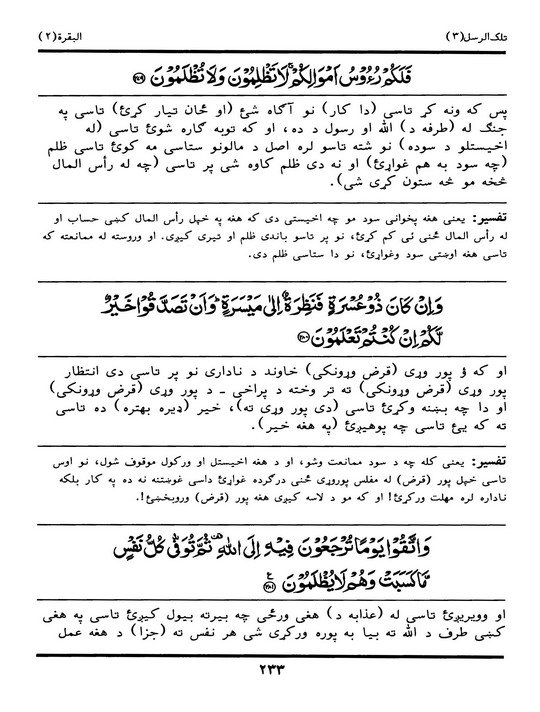 تلك الرسل (٣)
البقرة (٢)
فَلَكُمْ رُءُوْسُ اَمْوَالِكُمْ ۚ لَا تَظْلِمُوْنَ وَلَا تُظْلَمُوْنَ ﴿٢٧٩﴾
پس که ونه کړ تاسي (دا کار) نو آګاه شئ (او ځان تيار کړئ) تاسي په
جنګ له (طرفه د) الله او رسول د ده، او که توبه ګاره شوئ تاسي (له
اخيستلو د سوده) نو شته تاسو لره اصل د مالونو ستاسي مه کوئ تاسي ظلم
(چه سود به هم غواړئ) او نه دی ظلم کاوه شی پر تاسي (چه له رأس المال
څخه مو څه ستون کړی شی).
تفسير: يعنی هغه پخوانی سود مو چه اخيستی دی که هغه په خپل رأس المال کښی حساب او
له رأس المال ځنی ئی کم کړئ، نو پر تاسو باندی ظلم او تيری کيږی. او وروسته له ممانعته که
تاسی هغه اوښتی سود وغواړئ، نو دا ستاسی ظلم دی.
وَاِنْ كَانَ ذُوْ عُسْرَةٍ فَنَظِرَةٌ اِلٰى مَيْسَرَةٍ ۗ وَاَنْ تَصَدَّقُوْا خَيْرٌ
لَّكُمْ اِنْ كُنْتُمْ تَعْلَمُوْنَ ﴿٢٨٠﴾
او که ؤ پور وړی (قرض وړونکی) خاوند د ناداری نو پر تاسي دی انتظار
پور وړی (قرض وړونکی) ته تر وخته د پراخی ـ د پور وړی (قرض وړونکی)
او دا چه بښنه وکړئ تاسي (دی پور وړی ته)، خير (ډيره بهتره) ده تاسي
ته که يئ تاسي چه پوهيږئ (په هغه خير).
تفسير: يعنی کله چه د سود ممانعت وشو، او د هغه اخيستل او ورکول موقوف شول، نو اوس
تاسی خپل پور (قرض) له مفلس پوروړی ځنی درګرده غواړئ داسی غوښتنه نه ده په کار بلکه
ناداره لره مهلت ورکړئ! او که مو د لاسه کيږی هغه پور (قرض) وروبخښئ!.
وَاتَّقُوْا يَوْمًا تُرْجَعُوْنَ فِيْهِ اِلَى اللّٰهِ ۗ ثُمَّ تُوَفّٰى كُلُّ نَفْسٍ
مَّا كَسَبَتْ وَهُمْ لَا يُظْلَمُوْنَ ﴿٢٨١﴾
او وويريږئ تاسي له (عذابه د) هغی ورځی چه بيرته بيول کيږئ تاسي په هغی
کښی طرف د الله ته بيا به پوره ورکړی شی هر نفس ته (جزا) د هغه عمل
٢٣٣